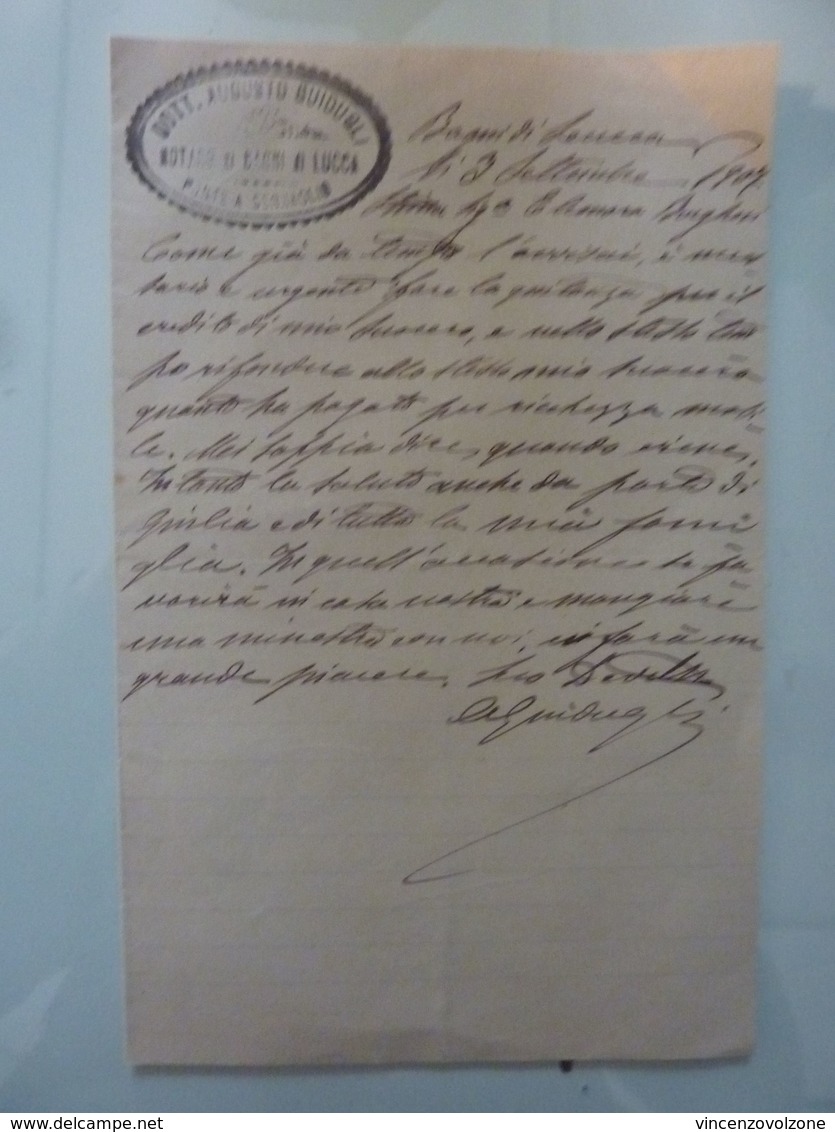 DOTT. AUGUSTO GUIDUGLI
NOTARO DI BAGNI DI LUCCA
PONTE A SERRAGLIO
Bagni di Lucca
li 3 Settembre 1907
Stima Sga Eleonora
Come già da tempo l'avvisai, è neces
sario e urgente fare la quitanza per il
credito di mio suocero, e nello stesso tem
po rifondere allo stesso mio suocero
quanto ha pagato per ricchezza mobi
le. Mi sappia dire, quando viene.
Intanto la saluto anche da parte di
Giulia e di tutta la mia fami
glia. In quell'occasione se fa
vorirà in casa nostra e mangiare
una minestra con noi, ci farà un
grande piacere. Suo
AGuidugli
delcampe.net
vincenzovolzone